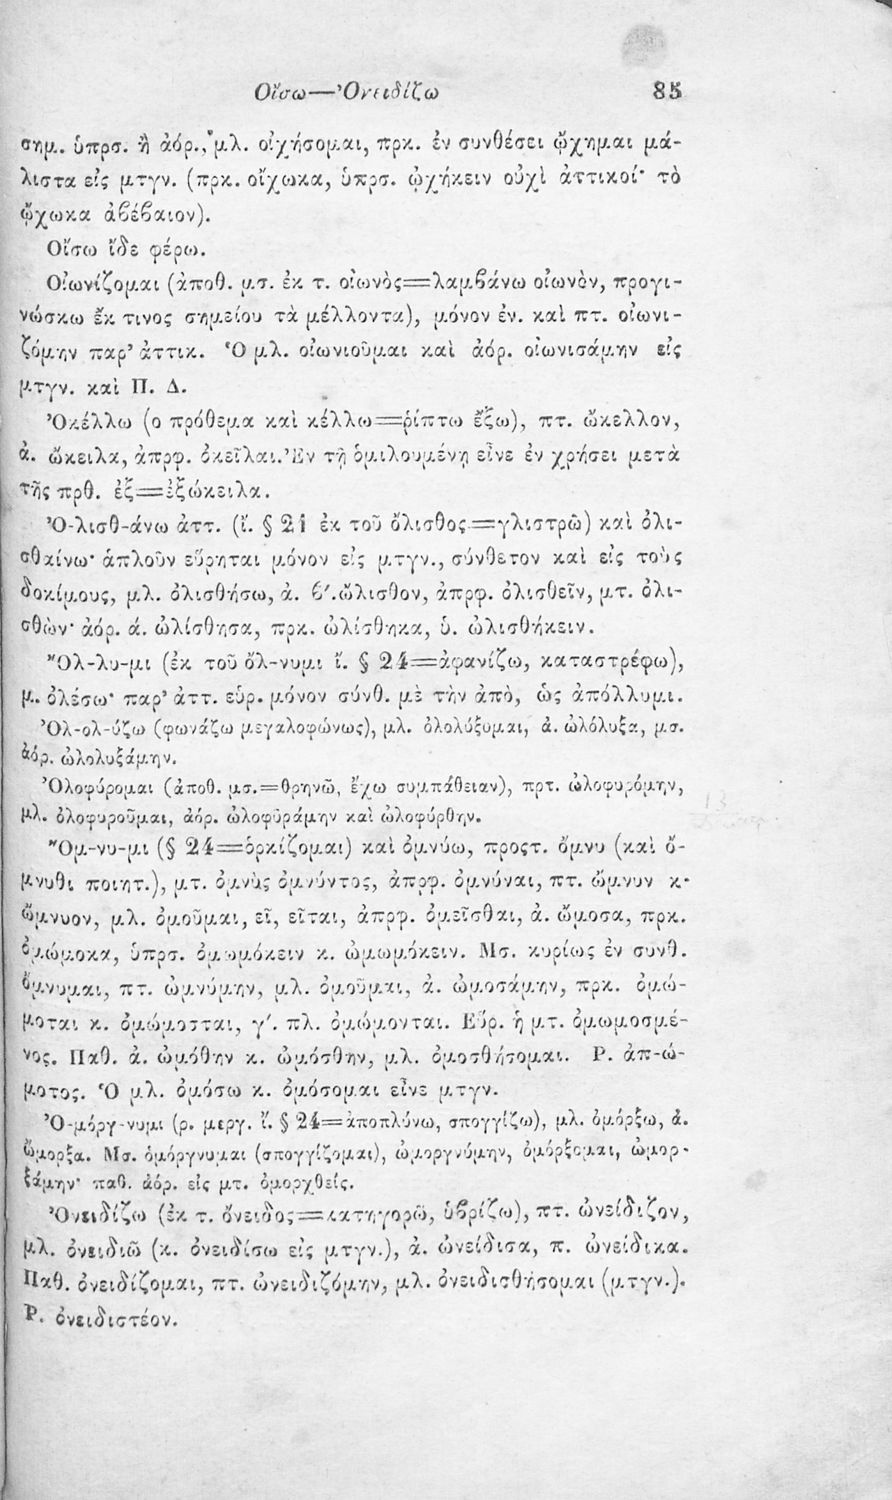 Οἴσω—Ὀνειδίζω 85
σημ. ὑπρσ. ἢ ἀόρ., μλ. οἰχήσομαι, πρκ. ἐν συνθέσει ᾤχημαι μά-
λιστα εἰς μτγν. (πρκ. οἴχωκα, ὑπρσ. ᾠχήκειν οὐχὶ ἀττικοί· τὸ
ᾤχωκα ἀβέβαιον).
Οἴσω ἴδε φέρω.
Οἰωνίζομαι (ἀποθ. μσ. ἐκ τ. οἰωνὸς=λαμβάνω οἰωνὸν, προγι-
νώσκω ἔκ τινος σημείου τὰ μέλλοντα), μόνον ἐν. καὶ πτ. οἰωνι-
ζόμην παρ' ἀττικ. Ὁ μλ. οἰωνιοῦμαι καὶ ἀόρ. οἰωνισάμην εἰς
μτγν. καὶ Π. Δ.
Ὀκέλλω (ο πρόθεμα καὶ κέλλω=ῥίπτω ἔξω), πτ. ὤκελλον,
ἀ. ὤκειλα, ἀπρφ. ὀκεῖλαι. Ἐν τῇ ὁμιλουμένῃ εἶνε ἐν χρήσει μετὰ
τῆς πρθ. ἐξ=ἐξώκειλα.
Ὀ-λισθ-άνω ἀττ. (ἴ. § 21 ἐκ τοῦ ὄλισθος=γλιστρῶ) καὶ ὀλι-
σθαίνω· ἁπλοῦν εὕρηται μόνον εἰς μτγν., σύνθετον καὶ εἰς τοὺς
δοκίμους, μλ. ὀλισθήσω, ἀ. β'. ὤλισθον, ἀπρφ. ὀλισθεῖν, μτ. ὀλι-
σθὼν· ἀόρ. ά. ὠλίσθησα, πρκ. ὠλίσθηκα, ὑ. ὠλισθήκειν.
Ὄλ-λυ-μι (ἐκ τοῦ ὄλ-νυμι ἴ. § 24=ἀφανίζω, καταστρέφω),
μ. ὀλέσω· παρ' ἀττ. εὑρ. μόνον σύνθ. μὲ τὴν ἀπὸ, ὡς ἀπόλλυμι.
Ὀλ-ολ-ύζω (φωνάζω μεγαλοφώνως), μλ. ὀλολύξομαι, ἀ. ὠλόλυξα, μσ.
ἀόρ. ὠλολυξάμην.
Ὀλοφύρομαι (ἀποθ. μσ.=θρηνῶ, ἔχω συμπάθειαν), πρτ. ὠλοφυρόμην,
μλ. ὀλοφυροῦμαι, ἀόρ. ὠλοφυράμην καὶ ὠλοφύρθην.
Ὄμ-νυ-μι (§ 24=ὁρκίζομαι) καὶ ὀμνύω, προςτ. ὄμνυ (καὶ ὄ-
μνυθι ποιητ.), μτ. ὀμνὺς ὀμνύντος, ἀπρφ. ὀμνύναι, πτ. ὤμνυν κ·
ὤμνυον, μλ. ὀμοῦμαι, εῖ, εῖται, ἀπρφ. ὀμεῖσθαι, ἀ. ὤμοσα, πρκ.
ὀμώμοκα, ὑπρσ. ὀμωμόκειν κ. ὠμωμόκειν. Μσ. κυρίως ἐν συνθ.
ὄμνυμαι, πτ. ὠμνύμην, μλ. ὀμοῦμαι, ἀ. ὠμοσάμην, πρκ. ὀμώ-
μοται κ. ὀμώμοσται, γ'. πλ. ὀμώμονται. Εὕρ. ἡ μτ. ὀμωμοσμέ-
νος. Παθ. ἀ. ὠμόθην κ. ὠμόσθην, μλ. ὀμοσθήσομαι. Ρ. ἀπ-ώ-
μοτος. Ὁ μλ. ὀμόσω κ. ὀμόσομαι εἶνε μτγν.
Ὀ-μόργ-νυμι (ρ. μεργ. ἴ. § 24=ἀποπλύνω, σπογγίζω), μλ. ὀμόρξω, ἀ.
ὤμορξα. Μσ. ὀμόργνυμαι (σπογγίζομαι), ὠμοργνύμην, ὀμόρξομαι, ὠμορ-
ξάμην· παθ. ἀόρ. εἰς μτ. ὀμορχθείς.
Ὀνειδίζω (ἐκ τ. ὄνειδος=κατηγορῶ, ὑβρίζω), πτ. ὠνείδιζον,
μλ. ὀνειδιῶ (κ. ὀνειδίσω εἰς μτγν.), ἀ. ὠνείδισα, π. ὠνείδικα.
Παθ. ὀνειδίζομαι, πτ. ὠνειδιζόμην, μλ. ὀνειδισθήσομαι (μτγν.).
Ρ. ὀνειδιστέον.